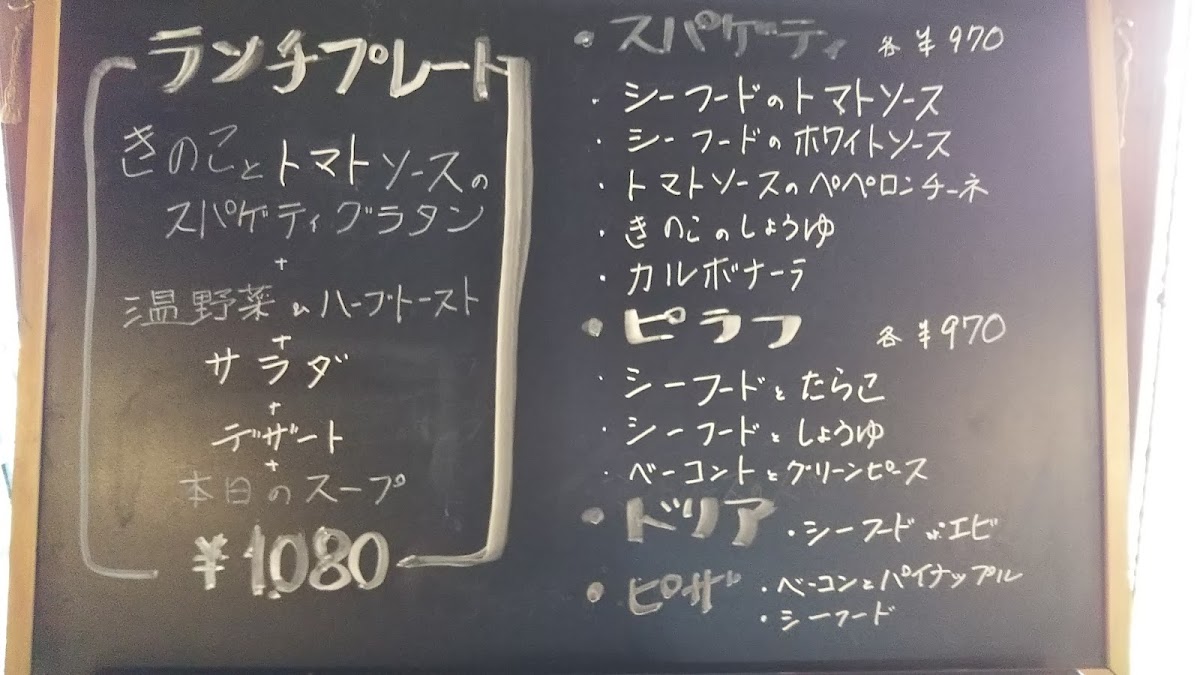 ランチプレート
きのことトマトソースの
スパゲティグラタン
+
温野菜のハーブトースト
+
サラダ
+
デザート
+
本日のスープ
¥1,080
・スパゲティ 各¥970
・シーフードのトマトソース
・シーフードのホワイトソース
・トマトソースのペペロンチーネ
・きのこのしょうゆ
・カルボナーラ
・ピラフ 各¥970
・シーフードとたらこ
・シーフードとしょうゆ
・ベーコントとグリーンピース
・ドリア ・シーフード エビ
・ピザ ・ベーコンとパイナップル
・シーフード